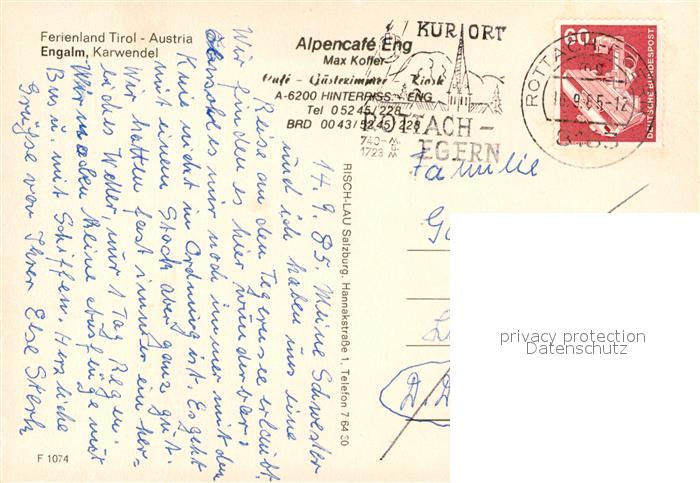 Ferienland Tirol - Austria
Engalm, Karwendel
Alpencafé Eng
Max Kofler
Café - Gästezimmer - Kiosk
A-6200 HINTERRISS - ENG
Tel 05245/228
BRD 0043/5245/228
KURORT
ROTTACH-
EGERN
740-
1723 m
ROTTACH-
16.9.85-12
8183
60
DEUTSCHE BUNDESPOST
14.9.85. Meine Schwester
und ich haben uns eine
Reise an den Tegernsee erlaubt.
Wir finden es hier wunderbar.
nur noch immer mit dem
Knie nicht in Ordnung ist. Es geht
mit einem Stock aber ganz gut.
Wir hatten fast immer ein her-
liches Wetter, nur 1 Tag Regen.
Wir machen kleine Ausflüge mit
Bus u. mit Schiffen. Herzliche
Grüße von Ihrer Else
RISCH-LAU Salzburg, Hannakstraße 1, Telefon 7 64 30
Familie
F 1074
privacy protection
Datenschutz